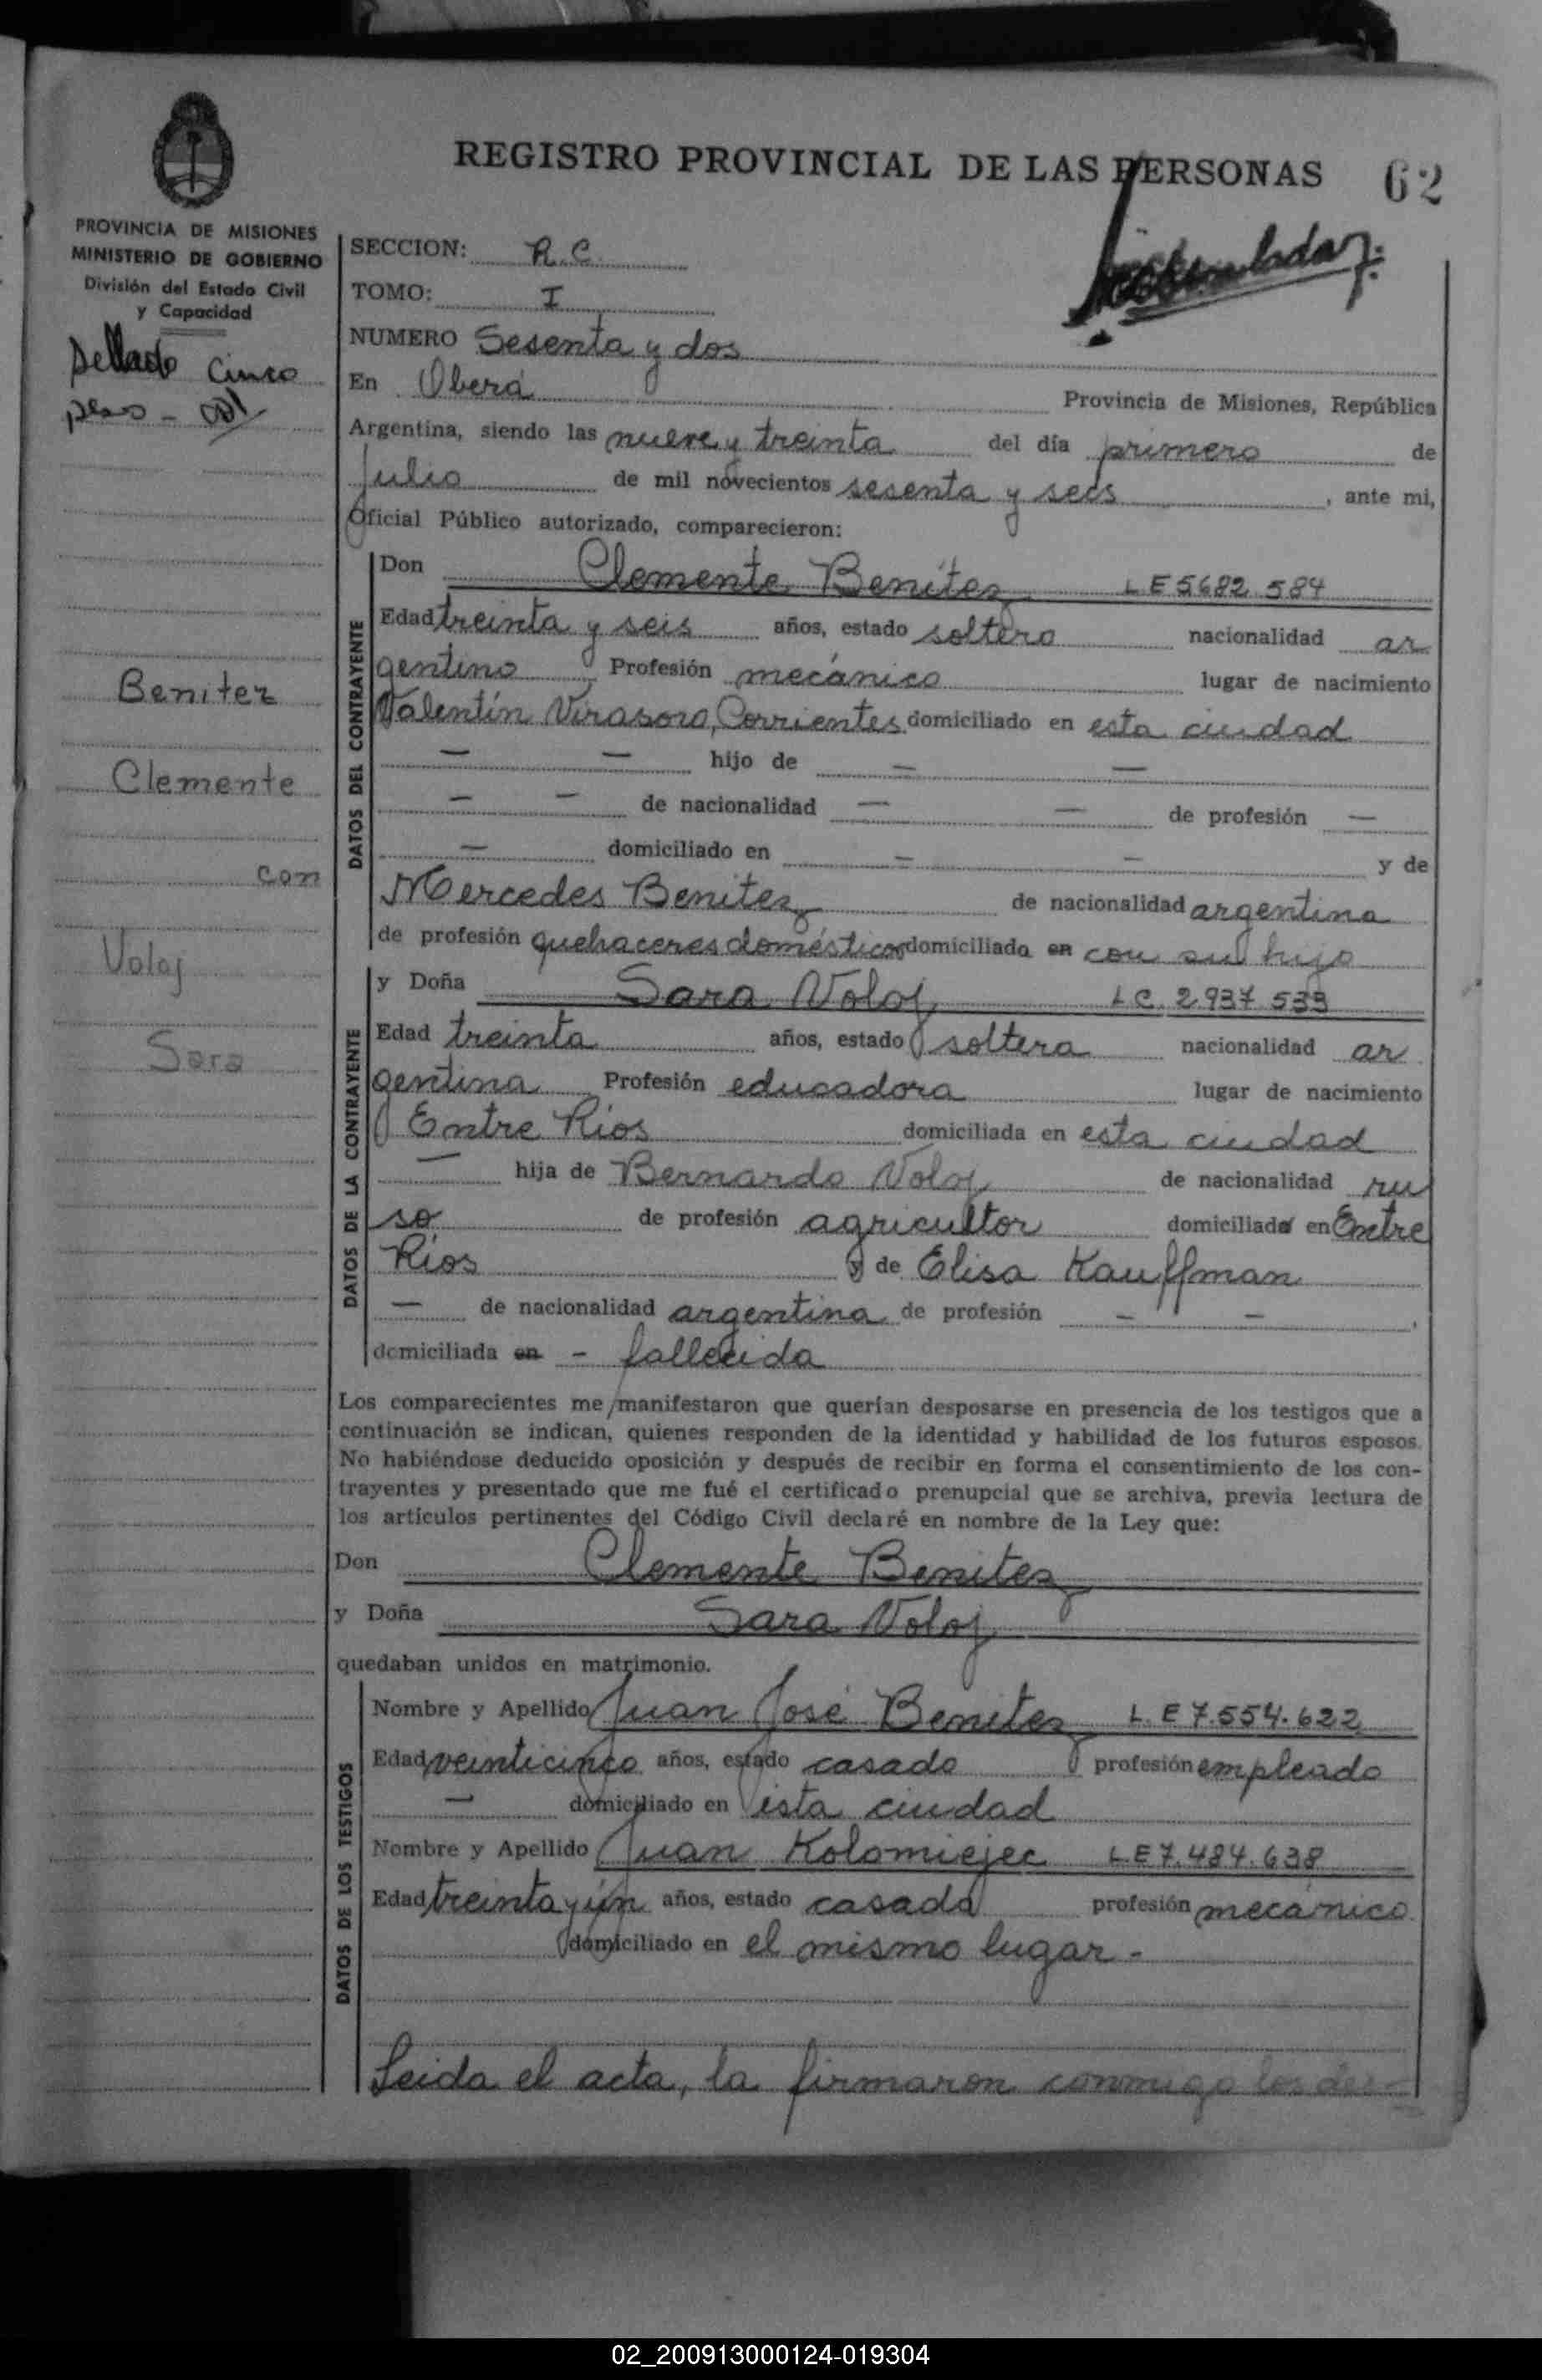 REGISTRO PROVINCIAL DE LAS PERSONAS 62
PROVINCIA DE MISIONES
MINISTERIO DE GOBIERNO
División del Estado Civil
y Capacidad
Sellado Cinco
pesos -
Benitez
Clemente
con
Voloj
Sara
SECCION: R.C.
TOMO: I
NUMERO Sesenta y dos
En Oberá Provincia de Misiones, República
Argentina, siendo las nueve y treinta del día primero de
Julio de mil novecientos sesenta y seis, ante mi,
Oficial Público autorizado, comparecieron:
DATOS DEL CONTRAYENTE
Don Clemente Benítez LE 5682.584
Edad treinta y seis años, estado soltero nacionalidad ar
gentino Profesión mecánico lugar de nacimiento
Valentín Virasoro, Corrientes domiciliado en esta ciudad
— — hijo de — —
— — de nacionalidad — — de profesión —
— domiciliado en — — y de
Mercedes Benitez de nacionalidad argentina
de profesión quehaceres domésticos domiciliada en con su hijo
DATOS DE LA CONTRAYENTE
y Doña Sara Voloj LC. 2.937.533
Edad treinta años, estado soltera nacionalidad ar
gentina Profesión educadora lugar de nacimiento
Entre Ríos domiciliada en esta ciudad
— hija de Bernardo Voloj de nacionalidad ru
so de profesión agricultor domiciliado en Entre
Ríos y de Elisa Kauffman
— de nacionalidad argentina de profesión — —,
domiciliada en - fallecida
Los comparecientes me manifestaron que querían desposarse en presencia de los testigos que a
continuación se indican, quienes responden de la identidad y habilidad de los futuros esposos.
No habiéndose deducido oposición y después de recibir en forma el consentimiento de los con-
trayentes y presentado que me fué el certificado prenupcial que se archiva, previa lectura de
los artículos pertinentes del Código Civil declaré en nombre de la Ley que:
Don Clemente Benitez
y Doña Sara Voloj
quedaban unidos en matrimonio.
DATOS DE LOS TESTIGOS
Nombre y Apellido Juan José Benitez L.E 7.554.622
Edad veinticinco años, estado casado profesión empleado
— domiciliado en esta ciudad
Nombre y Apellido Juan Kolomiejec L.E 7.484.638
Edad treinta y ún años, estado casado profesión mecánico
domiciliado en el mismo lugar.-
Leida el acta, la firmaron conmigo los des-
02_200913000124-019304